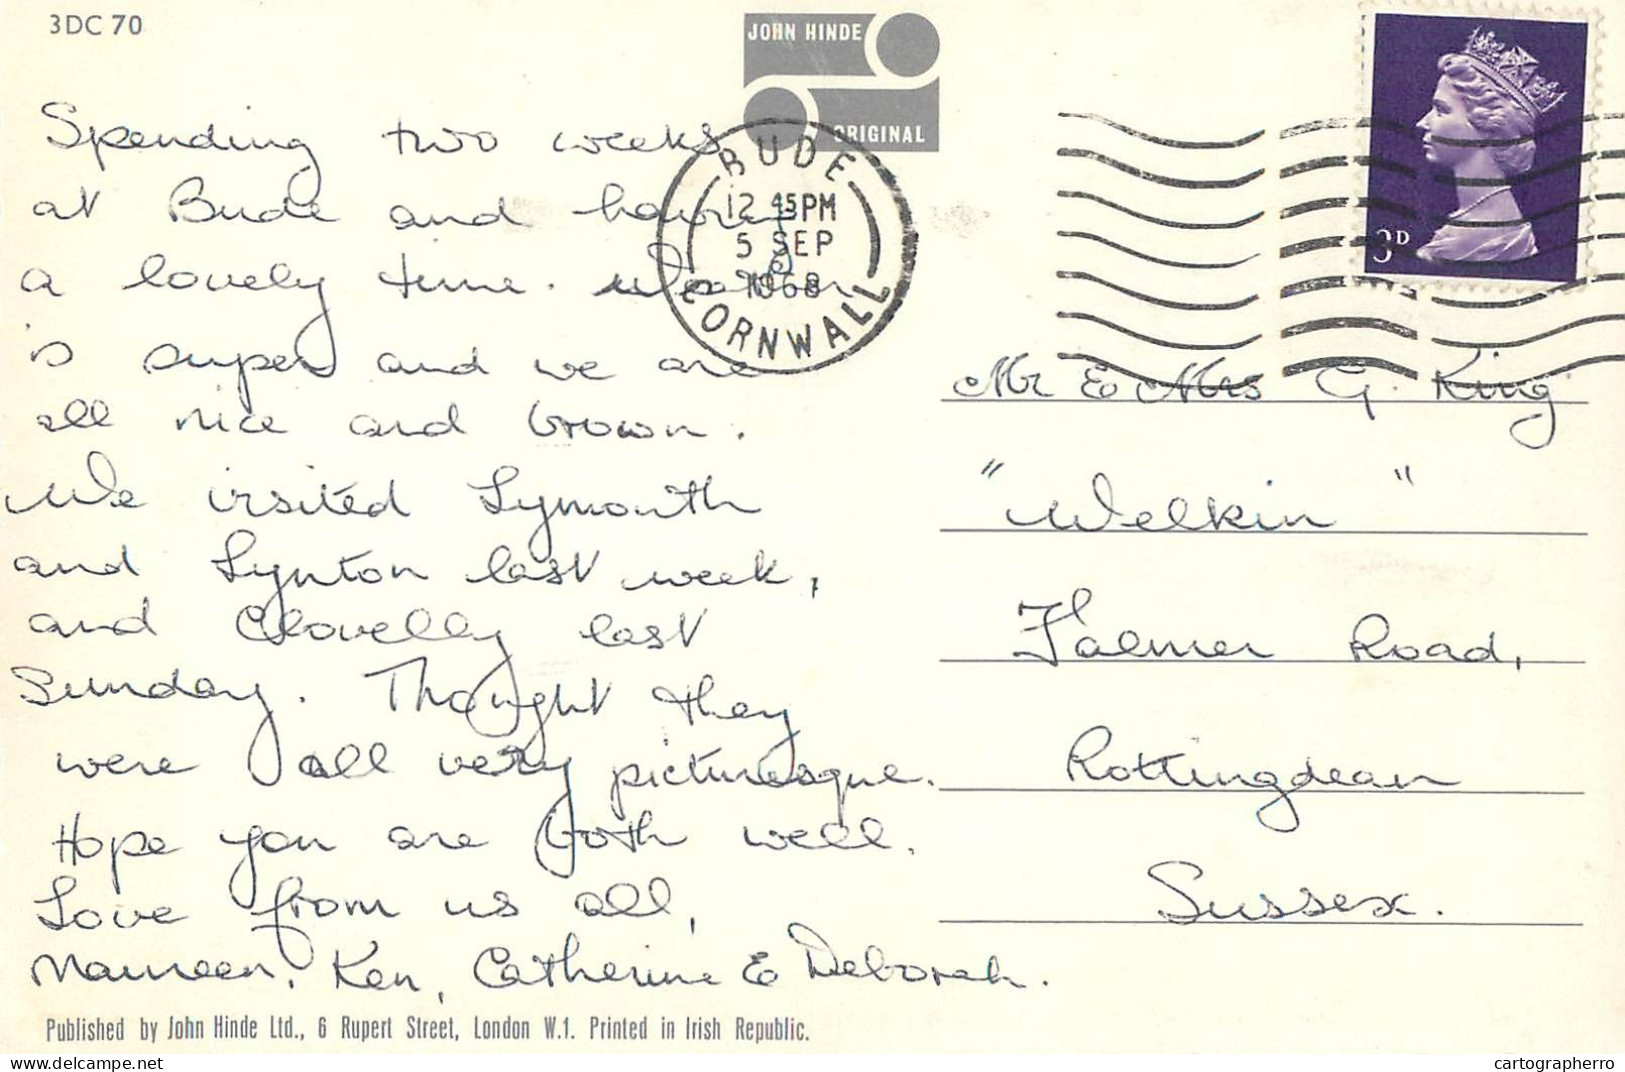 3DC 70
JOHN HINDE
ORIGINAL
BUDE
12 45PM
5 SEP
1968
CORNWALL
3D
Spending two weeks
at Bude and having
a lovely time. Weather
is super and we are
all nice and brown.
We visited Lymouth
and Lynton last week,
and Clovelly last
Sunday. Thought they
were all very picturesque.
Hope you are both well.
Love from us all,
Maureen, Ken, Catherine & Deborah.
Mr & Mrs G. King
"Welkin"
Falmer Road,
Rottingdean
Sussex.
Published by John Hinde Ltd., 6 Rupert Street, London W.1. Printed in Irish Republic.
cartographerro